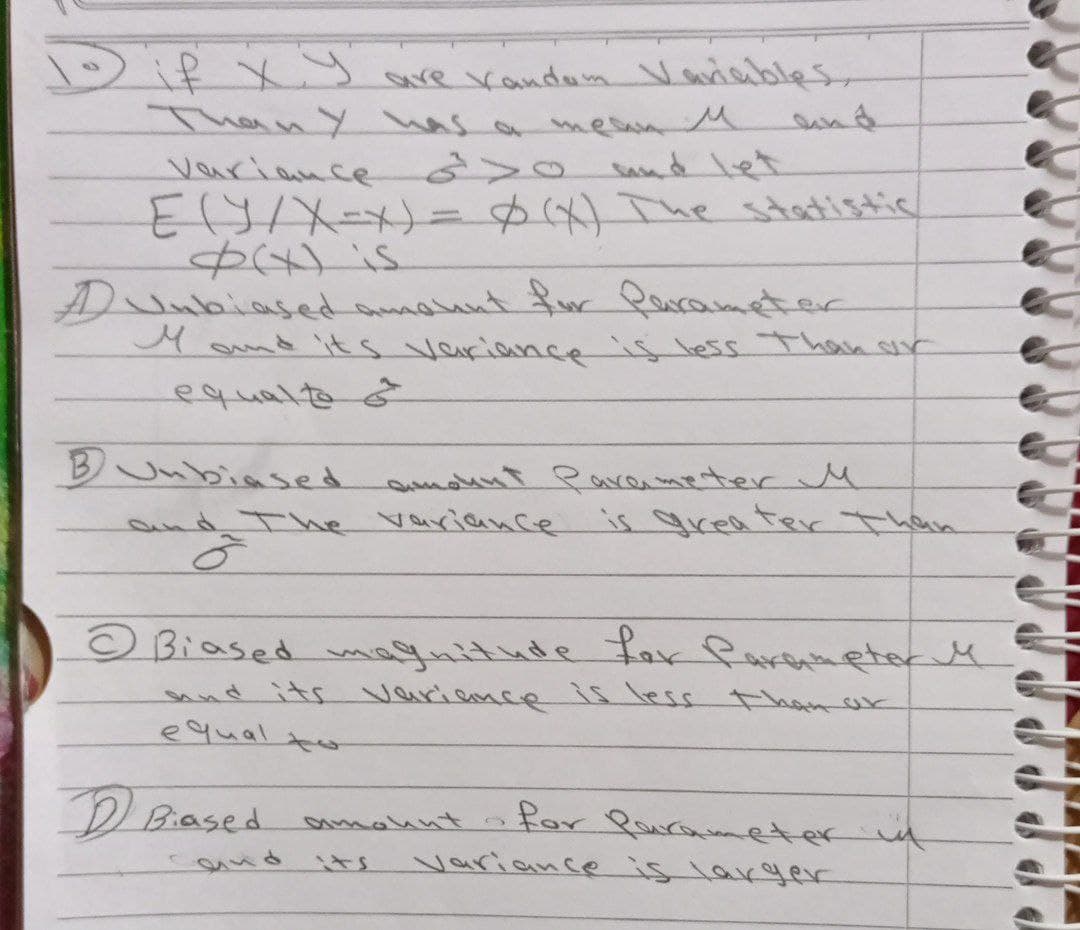 10) if X, Y are random Variables,
Then Y has a mean M and
variance σ² > 0 and let
E(Y/X=x) = φ(X) The statistic
φ(X) is
A) Unbiased amount for Parameter
M and its variance is less than or
equal to σ²
B) Unbiased amount Parameter M
and The variance is greater than
σ²
C) Biased magnitude for Parameter M
and its variance is less than or
equal to
D) Biased amount for Parameter M
and its variance is larger